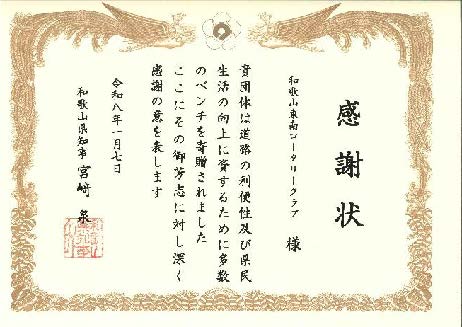 感謝状
和歌山東南ロータリークラブ 様
貴団体は道路の利便性及び県民
生活の向上に資するために多数
のベンチを寄贈されました
ここにその御芳志に対し深く
感謝の意を表します
令和八年一月七日
和歌山県知事 宮﨑 泉